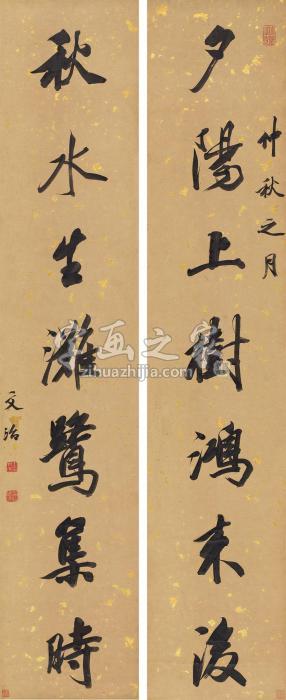 夕陽上樹鴻來後
仲秋之月
秋水生灘鷺集時
文治
字画之家
zihuazhijia.com